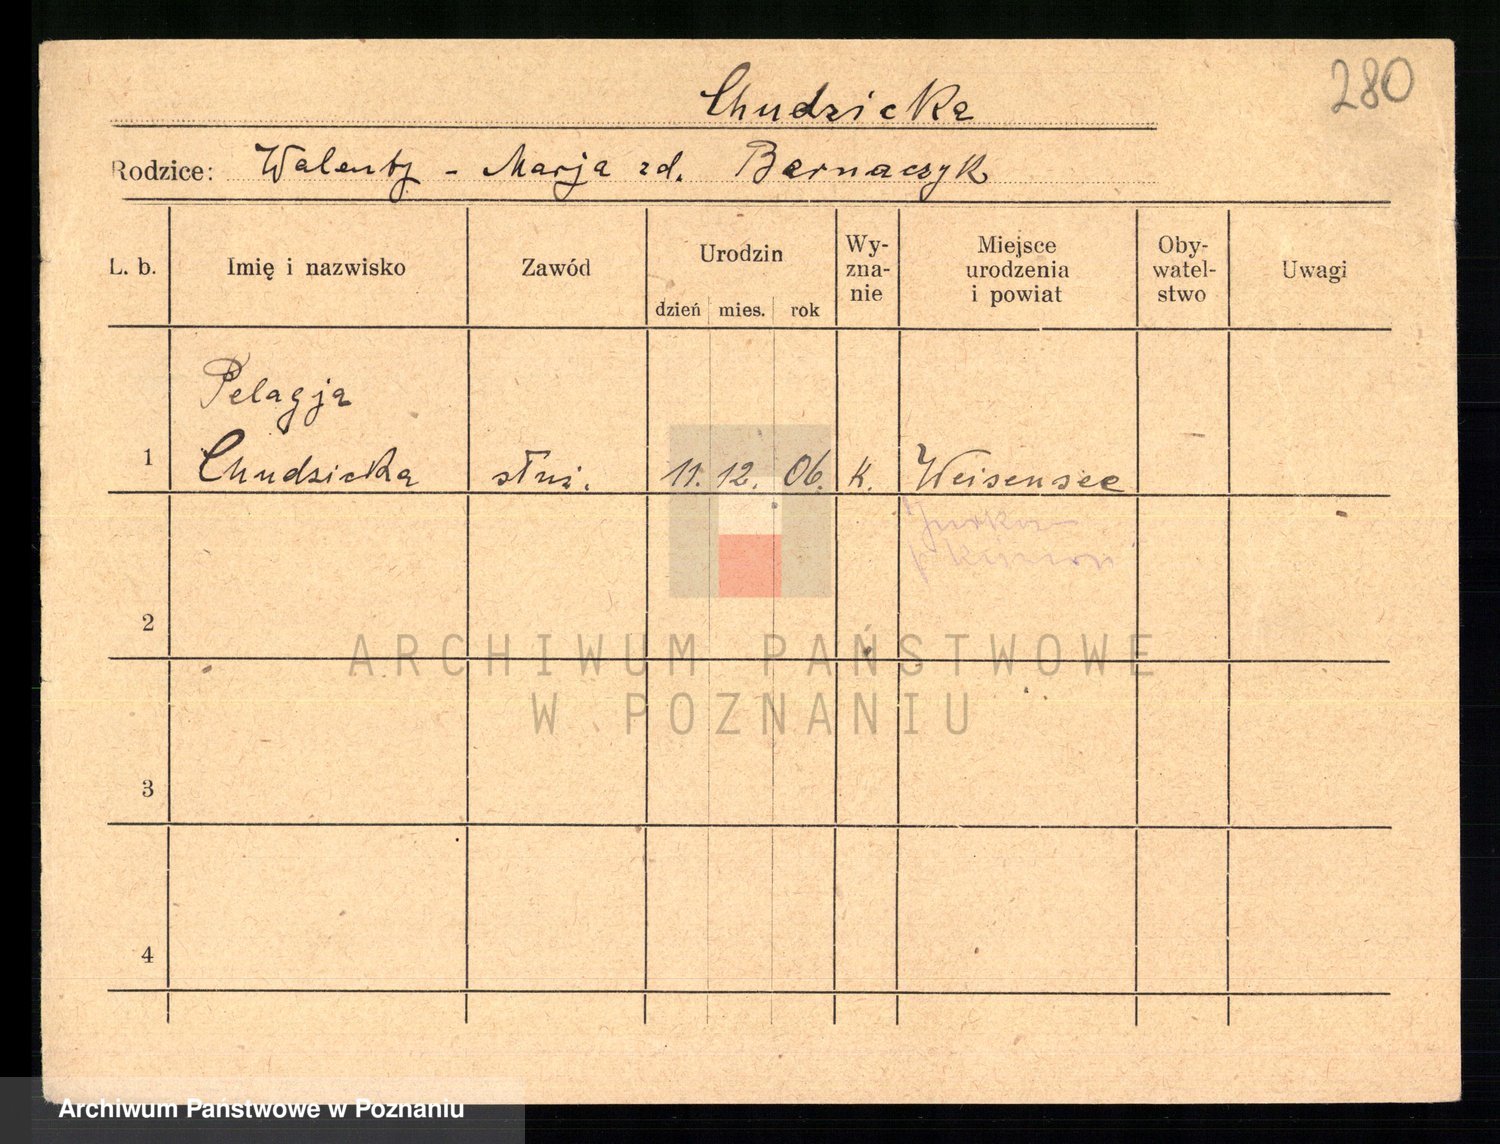 280
Chudzicka
Rodzice: Walenty - Marja zd. Bernaczyk
L. b. Imię i nazwisko Zawód Urodzin dzień mies. rok Wy-zna-nie Miejsce urodzenia i powiat Oby-watel-stwo Uwagi
Pelagja
1 Chudzicka służ. 11. 12. 06. k. Weisensee
2
ARCHIWUM PAŃSTWOWE
W POZNANIU
3
4
Archiwum Państwowe w Poznaniu